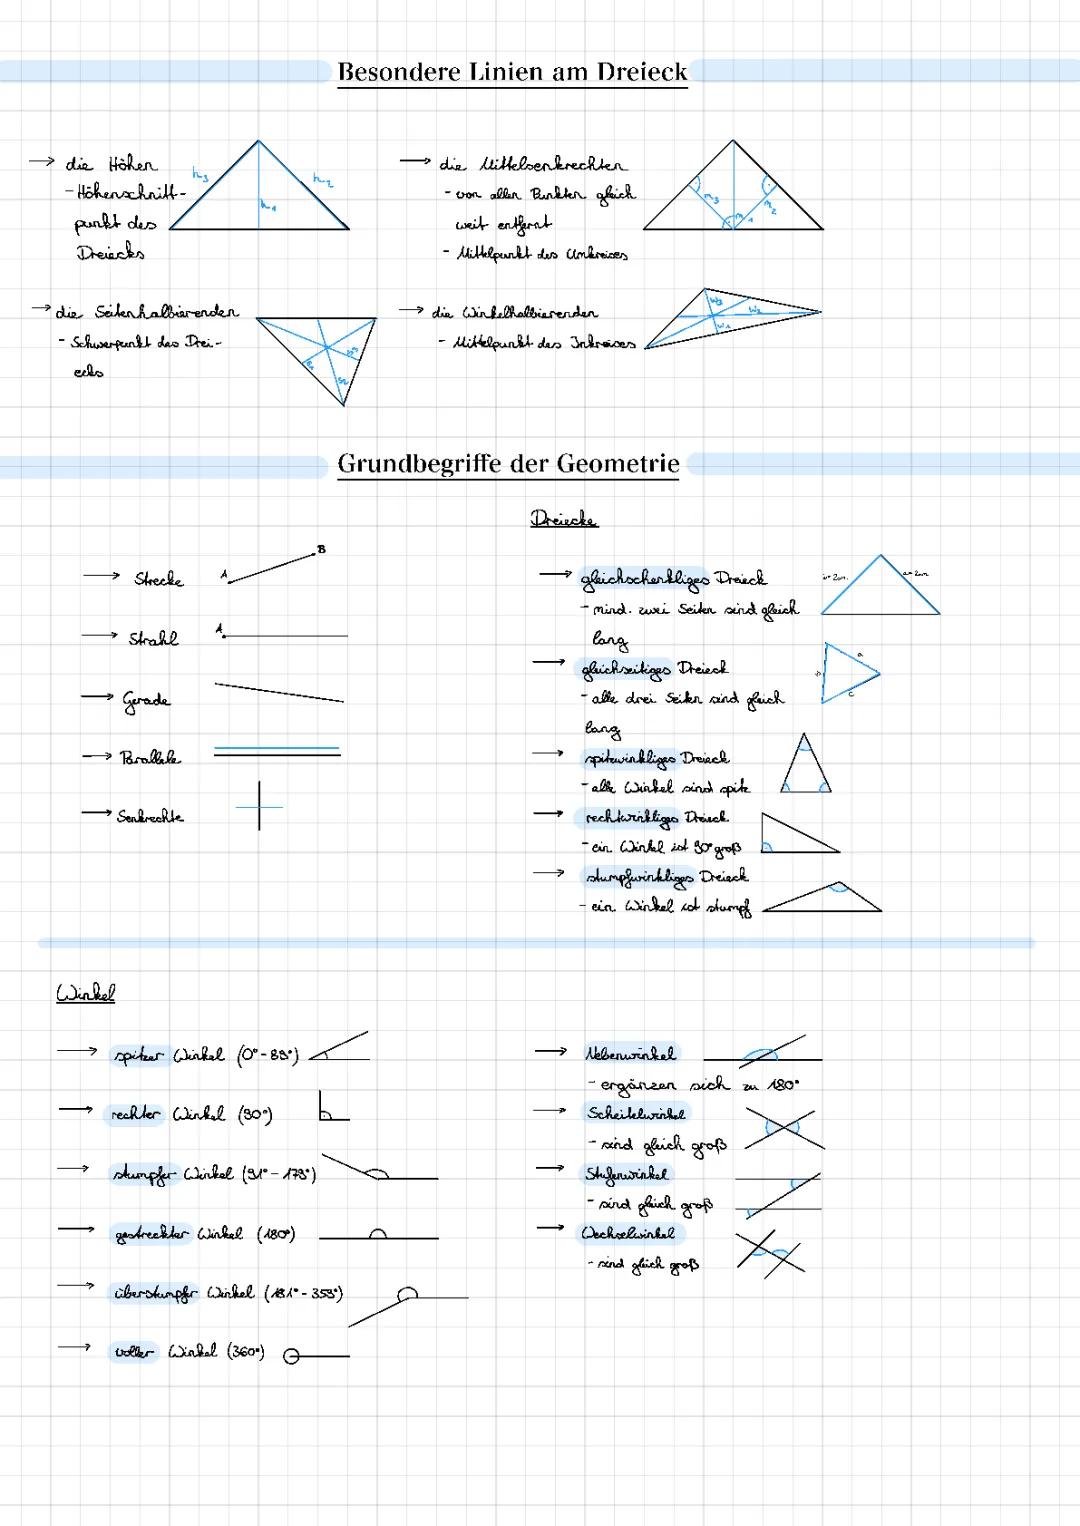 Besondere Linien am Dreieck
→ die Höhen
- Höhenschnitt-
punkt des
Dreiecks
h₃
h₂
h₁
→ die Mittelsenkrechten
- von allen Punkten gleich
weit entfernt
- Mittelpunkt des Umkreises
m₃
m₁
m₂
→ die Seitenhalbierenden
- Schwerpunkt des Drei-
ecks
→ die Winkelhalbierenden
- Mittelpunkt des Inkreises
w₃
w₂
w₁
Grundbegriffe der Geometrie
→ Strecke
A
B
→ Strahl
A
→ Gerade
→ Parallele
→ Senkrechte
Dreiecke
→ gleichschenkliges Dreieck
- mind. zwei Seiten sind gleich
lang
→ gleichseitiges Dreieck
- alle drei Seiten sind gleich
lang
a
b
c
→ spitzwinkliges Dreieck
- alle Winkel sind spitz
→ rechtwinkliges Dreieck
- ein Winkel ist 90° groß
→ stumpfwinkliges Dreieck
- ein Winkel ist stumpf
Winkel
→ spitzer Winkel (0° - 89°)
→ rechter Winkel (90°)
→ stumpfer Winkel (91° - 179°)
→ gestreckter Winkel (180°)
→ überstumpfer Winkel (181° - 359°)
→ voller Winkel (360°)
→ Nebenwinkel
- ergänzen sich zu 180°
→ Scheitelwinkel
- sind gleich groß
→ Stufenwinkel
- sind gleich groß
→ Wechselwinkel
- sind gleich groß